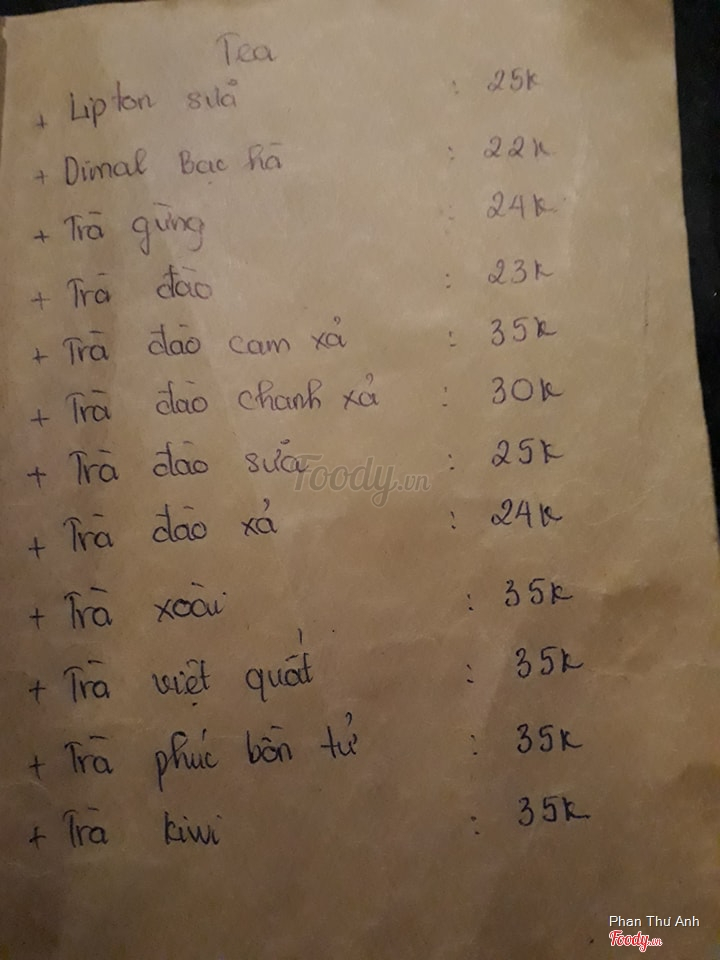 Tea
+ Lipton sữa : 25k
+ Dimal Bạc hà : 22k
+ Trà gừng : 24k
+ Trà đào : 23k
+ Trà đào cam xả : 35k
+ Trà đào chanh xả : 30k
+ Trà đào sữa : 25k
Foody.vn
+ Trà đào xả : 24k
+ Trà xoài : 35k
+ Trà việt quất : 35k
+ Trà phúc bồn tử : 35k
+ Trà kiwi : 35k
Phan Thư Anh
Foody.vn